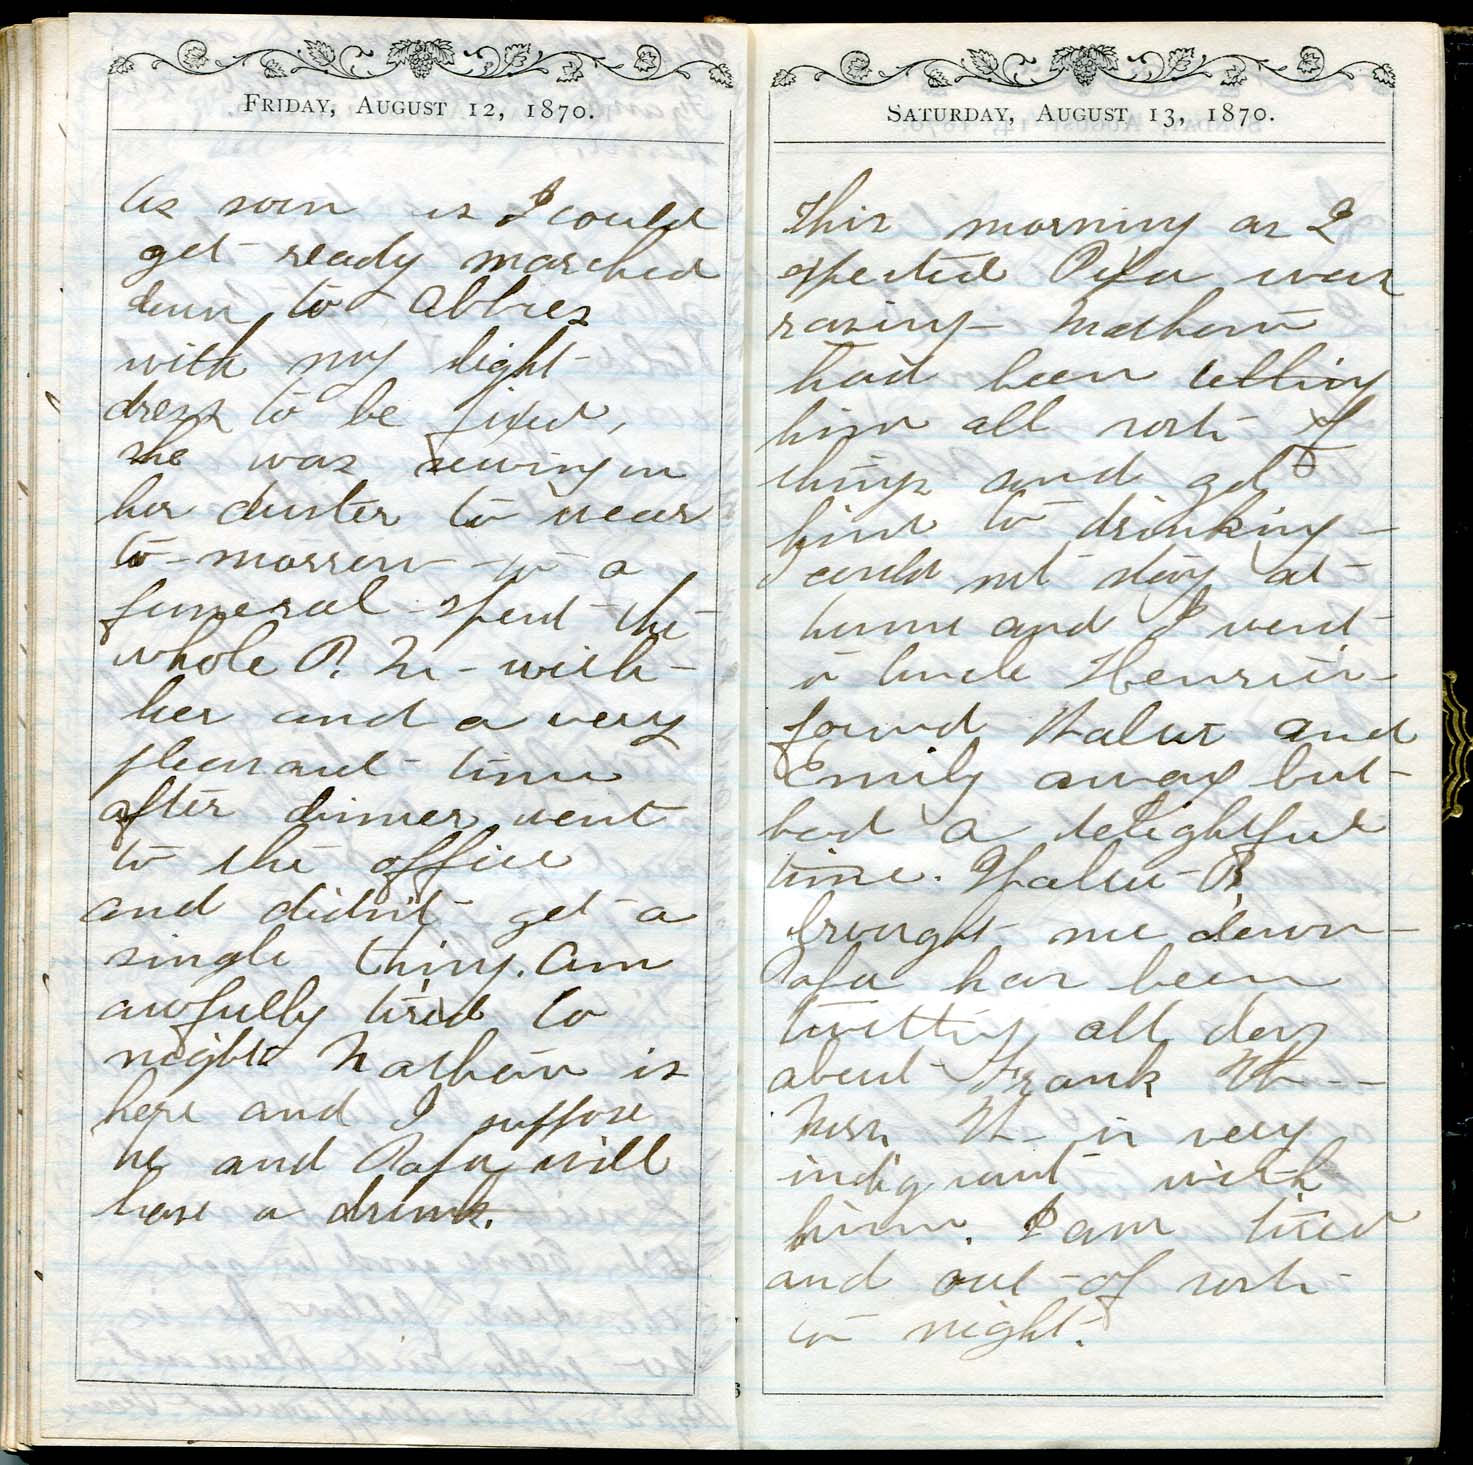 FRIDAY, AUGUST 12, 1870.
As soon as I could
get ready marched
down to Abbies
with my light
dress to be fixed,
she was sewing on
her duster to wear
to-morrow to a
funeral - spent the
whole P. M - with
her and a very
pleasant - time
after dinner went
to the office
and didn't get a
single thing. Am
awfully tired to
night Nathan is
here and I suppose
he and Papa will
have a drink.
SATURDAY, AUGUST 13, 1870.
This morning as I
expected Papa was
rasing - Nathan
had been telling
him all sorts of
things and got
him to drinking -
could not stay at
home and I went
to Uncle Henries -
found Walter and
Emily away but
had a delightful
time. Walter P.
brought me down -
Papa has been
twitting all day
about Frank W - -
Miss W - is very
indignant with
him. I am tired
and out of sorts -
to night.